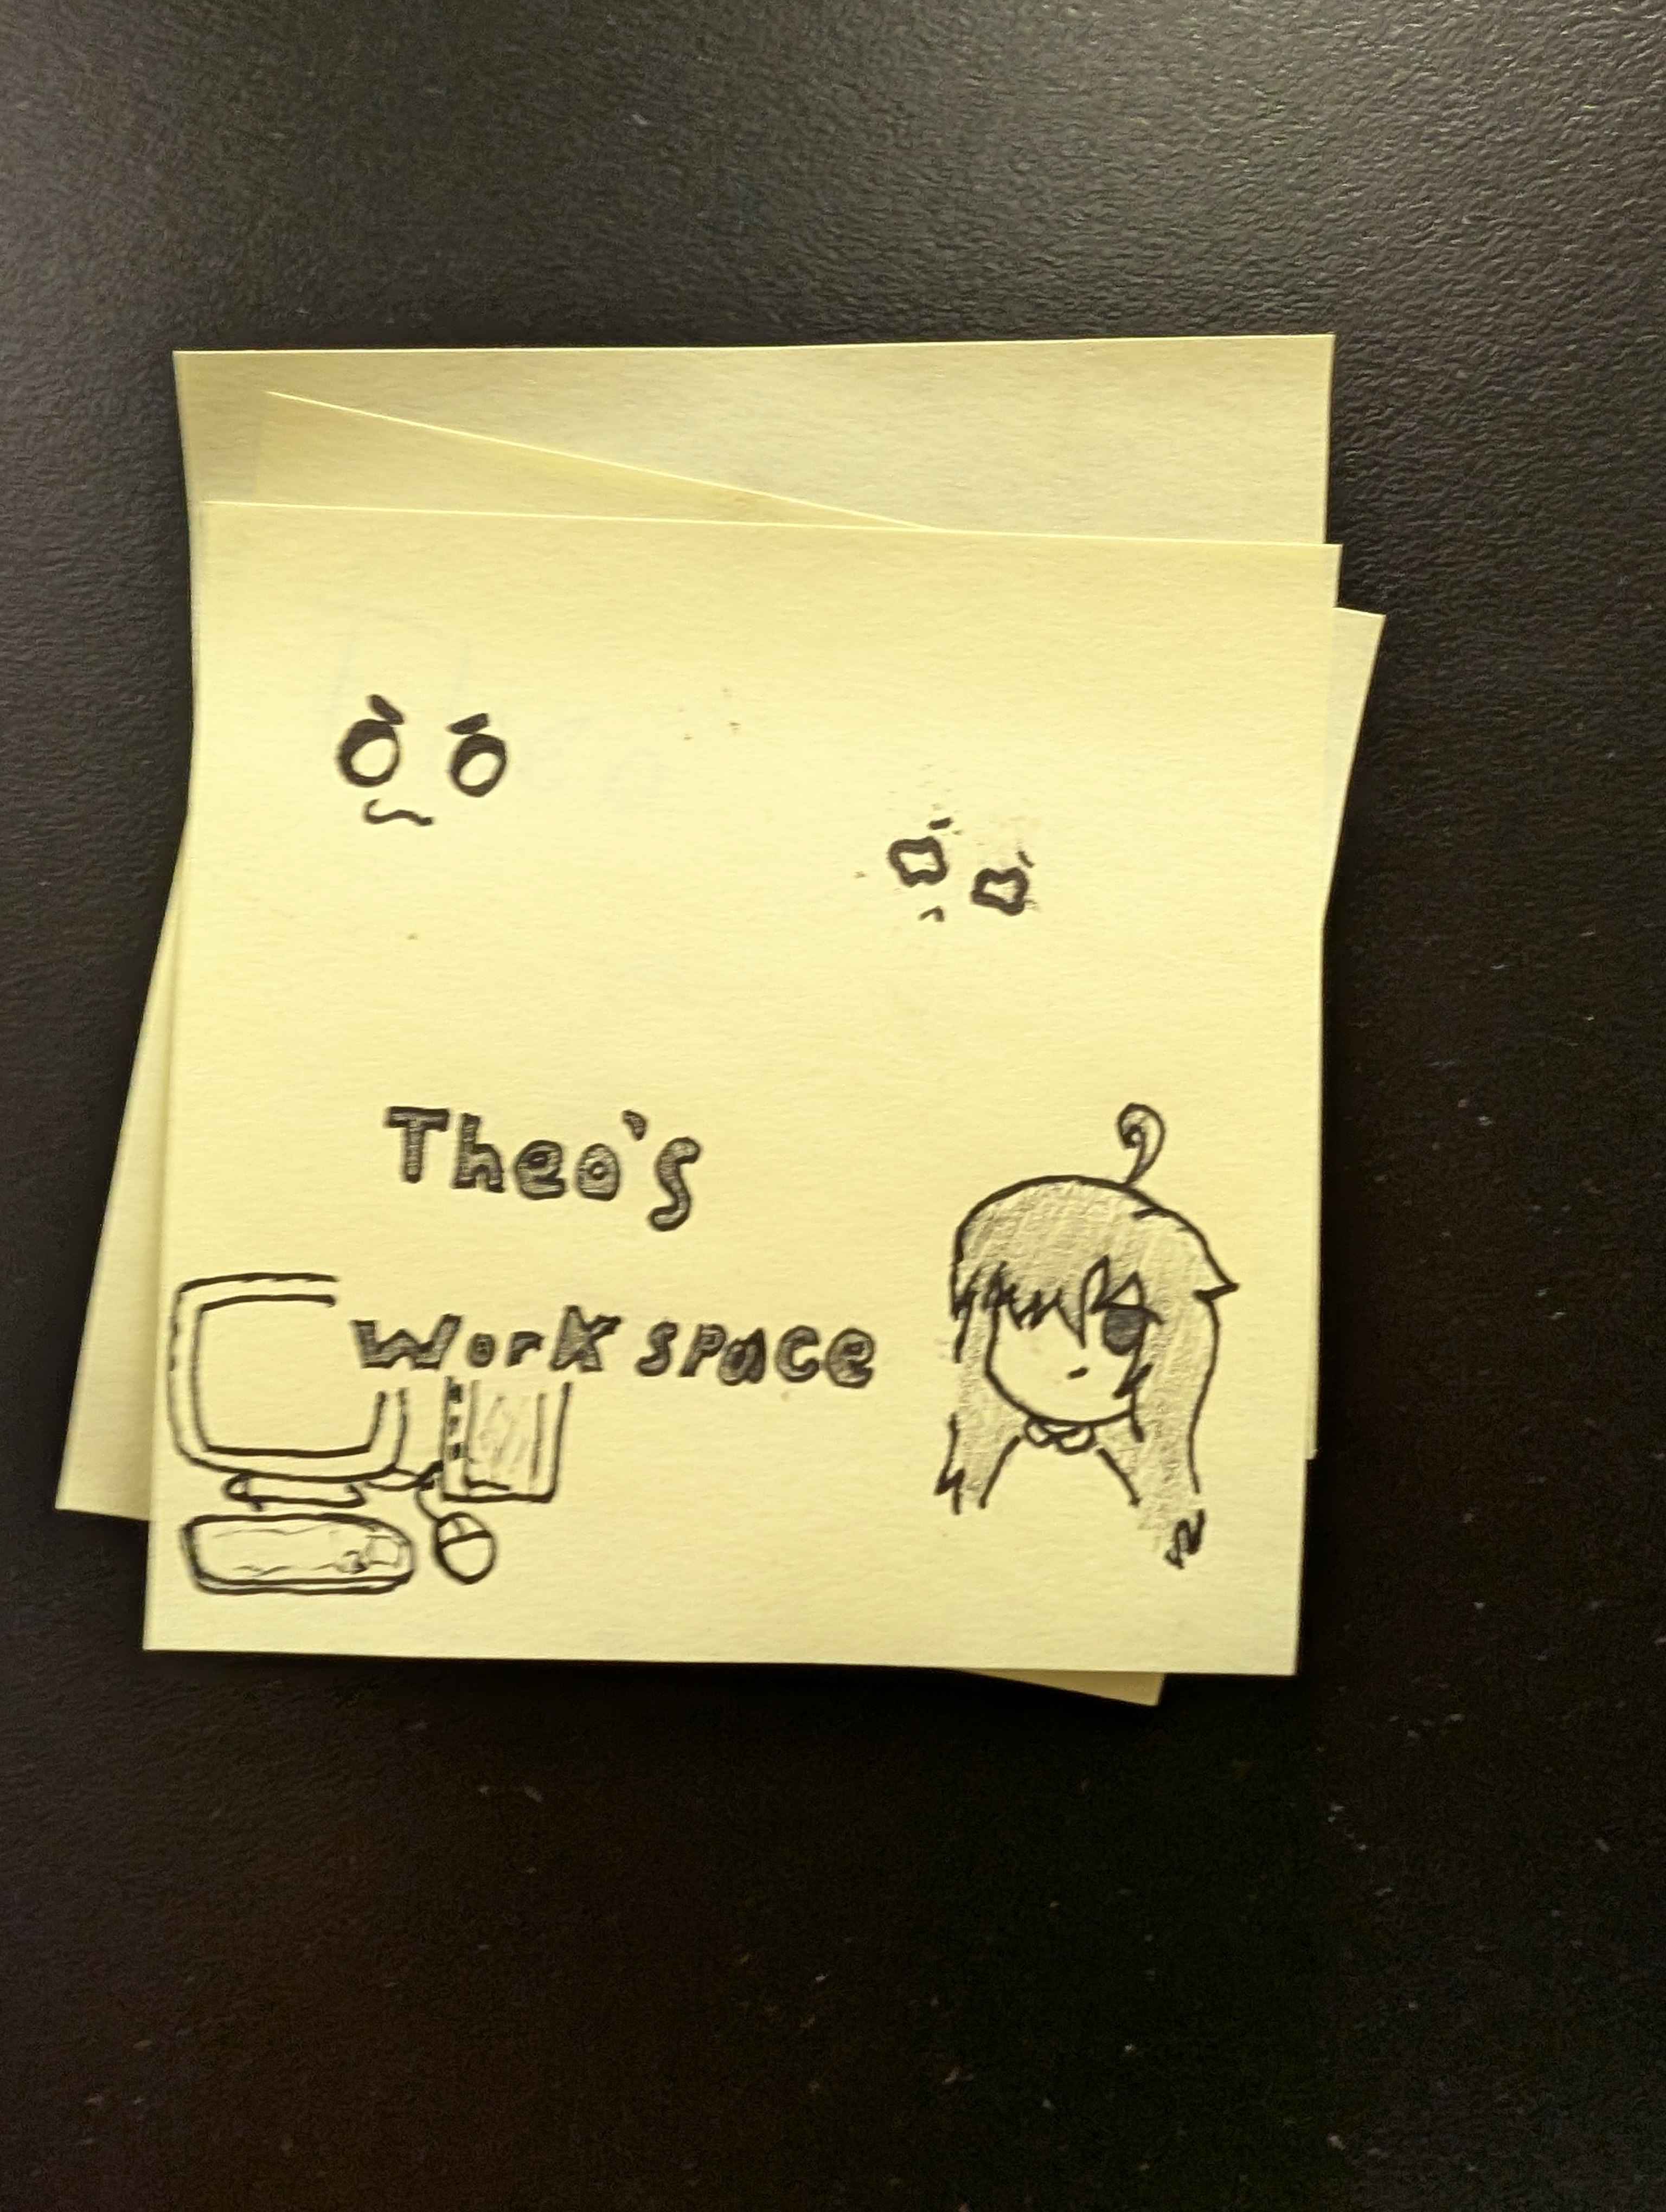 Theo's
Work space